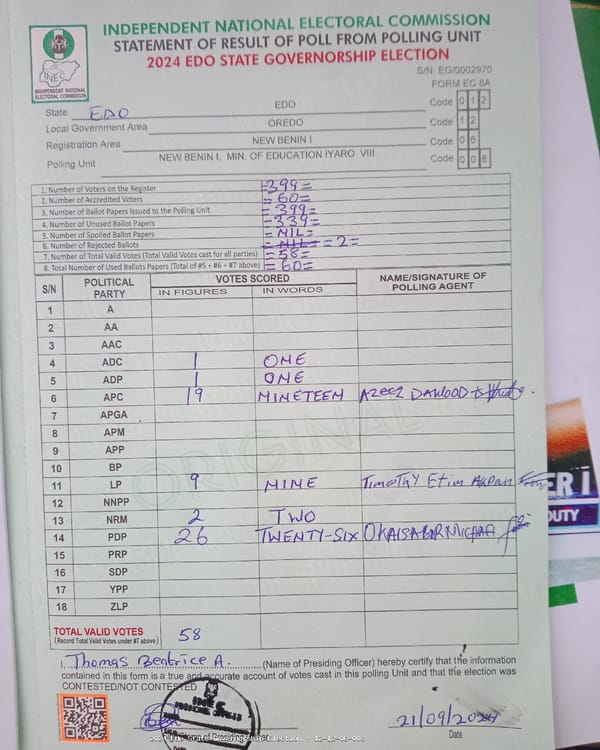 INDEPENDENT NATIONAL ELECTORAL COMMISSION
STATEMENT OF RESULT OF POLL FROM POLLING UNIT
2024 EDO STATE GOVERNORSHIP ELECTION
INEC
INDEPENDENT NATIONAL ELECTORAL COMMISSION
S/N: EG/0002970
FORM EC 8A
State EDO EDO Code 0 1 2
Local Government Area OREDO Code 1 2
Registration Area NEW BENIN I Code 0 6
Polling Unit NEW BENIN I, MIN. OF EDUCATION IYARO VIII Code 0 0 8
1. Number of Voters on the Register =399=
2. Number of Accredited Voters =60=
3. Number of Ballot Papers Issued to the Polling Unit =399=
4. Number of Unused Ballot Papers =339=
5. Number of Spoiled Ballot Papers =NIL=
6. Number of Rejected Ballots =NIL= =2=
7. Number of Total Valid Votes (Total Valid Votes cast for all parties) =58=
8. Total Number of Used Ballots Papers (Total of #5 + #6 + #7 above) =60=
S/N POLITICAL PARTY VOTES SCORED NAME/SIGNATURE OF POLLING AGENT
IN FIGURES IN WORDS
1 A
2 AA
3 AAC
4 ADC 1 ONE
5 ADP 1 ONE
6 APC 19 NINETEEN Azeez DAWOOD
7 APGA
8 APM
9 APP
10 BP
11 LP 9 NINE Timothy Etim Akpan
12 NNPP
13 NRM 2 TWO
14 PDP 26 TWENTY-SIX
15 PRP
16 SDP
17 YPP
18 ZLP
ORIGINAL
TOTAL VALID VOTES 58
(Record Total Valid Votes under #7 above)
I, Thomas Beatrice A. (Name of Presiding Officer) hereby certify that the information
contained in this form is a true and accurate account of votes cast in this polling Unit and that the election was
CONTESTED/NOT CONTESTED
21/09/2024
Date
ER I
DUTY